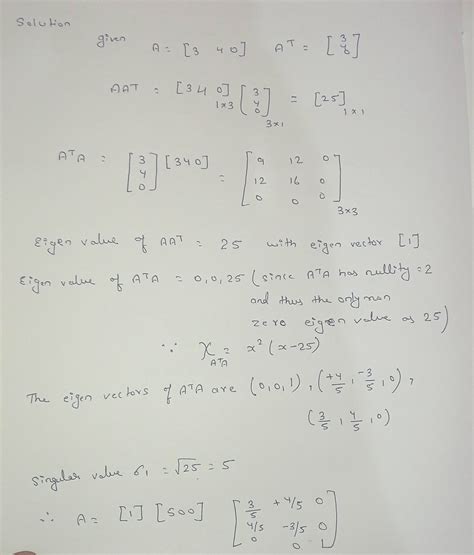 Solution
given A = [3 4 0] Aᵀ = [3 4 0]
AAᵀ = [3 4 0]1×3 [3 4 0]3×1 = [25]1×1
AᵀA = [3 4 0] [3 4 0] = [9 12 0
12 16 0
0 0 0]3×3
Eigen value of AAᵀ = 25 with eigen vector [1]
Eigen value of AᵀA = 0,0,25 (since AᵀA has nullity = 2
and thus the only non
zero eigen value as 25)
∵ χAᵀA = x²(x-25)
The eigen vectors of AᵀA are (0,0,1), (+4/5, -3/5, 0),
(3/5, 4/5, 0)
Singular value σ1 = √25 = 5
∴ A = [1] [500] [3/5 +4/5 0
4/5 -3/5 0
0 0 1]